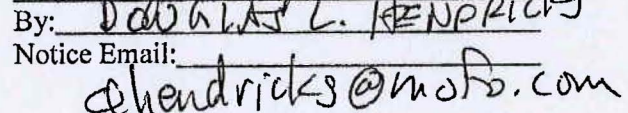 By: DOUGLAS L. HENDRICKS
Notice Email:
dhendricks@mofo.com